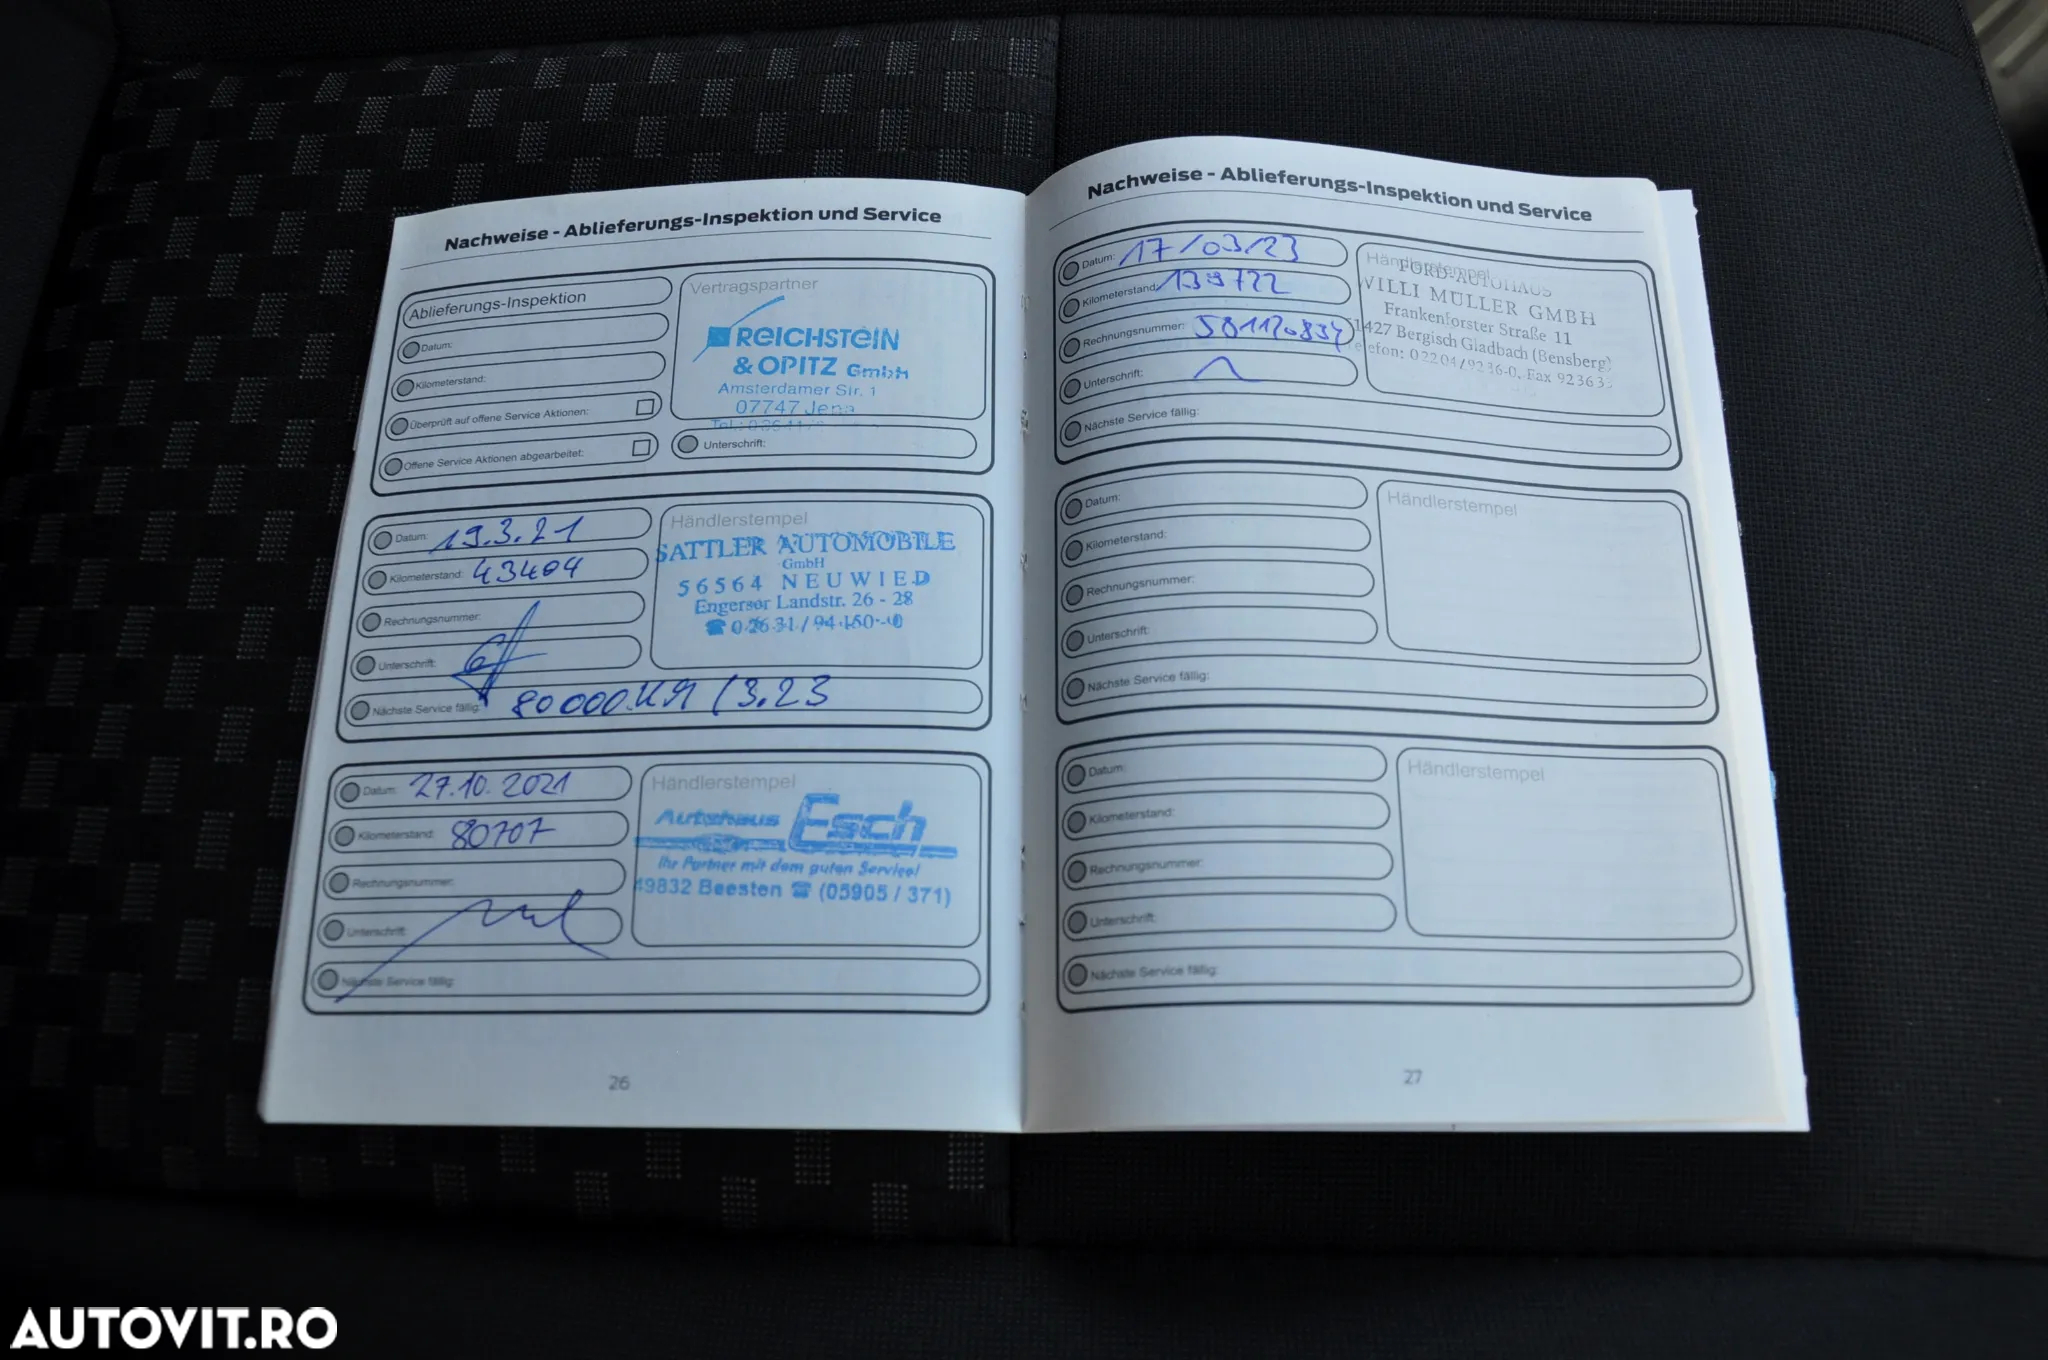 Nachweise - Ablieferungs-Inspektion und Service
Ablieferungs-Inspektion
Datum:
Kilometerstand:
Überprüft auf offene Service Aktionen:
Offene Service Aktionen abgearbeitet:
Vertragspartner
REICHSTEIN
& OPITZ GmbH
Amsterdamer Str. 1
07747 Jena
Unterschrift:
Datum: 19.3.21
Kilometerstand: 43404
Rechnungsnummer:
Unterschrift:
Nächste Service fällig: 80000 KM / 3.23
Händlerstempel
SATTLER AUTOMOBILE
GmbH
56564 NEUWIED
Engerser Landstr. 26 - 28
☎ 02631 / 94 150 - 0
Datum: 27.10.2021
Kilometerstand: 80707
Rechnungsnummer:
Unterschrift:
Nächste Service fällig:
Händlerstempel
Autohaus Esch
Ihr Partner mit dem guten Service!
49832 Beesten ☎ (05905 / 371)
26
Nachweise - Ablieferungs-Inspektion und Service
Datum: 17/03/23
Kilometerstand: 139722
Rechnungsnummer:
Unterschrift:
Nächste Service fällig:
Händlerstempel
FORD-AUTOHAUS
WILLI MÜLLER GMBH
Frankenforster Straße 11
51427 Bergisch Gladbach (Bensberg)
Telefon: 02204/9236-0, Fax 923633
Datum:
Kilometerstand:
Rechnungsnummer:
Unterschrift:
Nächste Service fällig:
Händlerstempel
Datum:
Kilometerstand:
Rechnungsnummer:
Unterschrift:
Nächste Service fällig:
Händlerstempel
27
AUTOVIT.RO